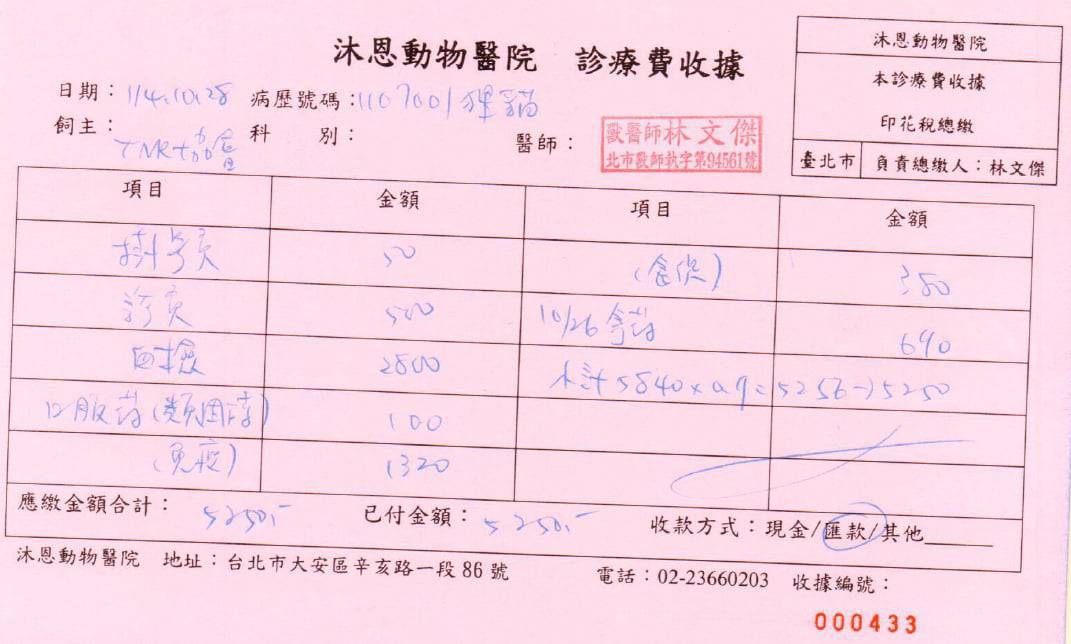 沐恩動物醫院 診療費收據
沐恩動物醫院
本診療費收據
印花稅總繳
臺北市 負責總繳人：林文傑
日期：114.10.28 病歷號碼：1107001
飼主： 科 別： 醫師：
獸醫師林文傑
北市獸師執字第94561號
TNR
項目 金額 項目 金額
掛號費 50 (食保) 350
診費 500 10/26 拿药 690
血檢 2800 共計5840×0.9=5256→5250
口服药(類固醇) 100
(免疫) 1320
應繳金額合計：5250.- 已付金額：5250.- 收款方式：現金/匯款/其他______
沐恩動物醫院 地址：台北市大安區辛亥路一段86號 電話：02-23660203 收據編號：
000433